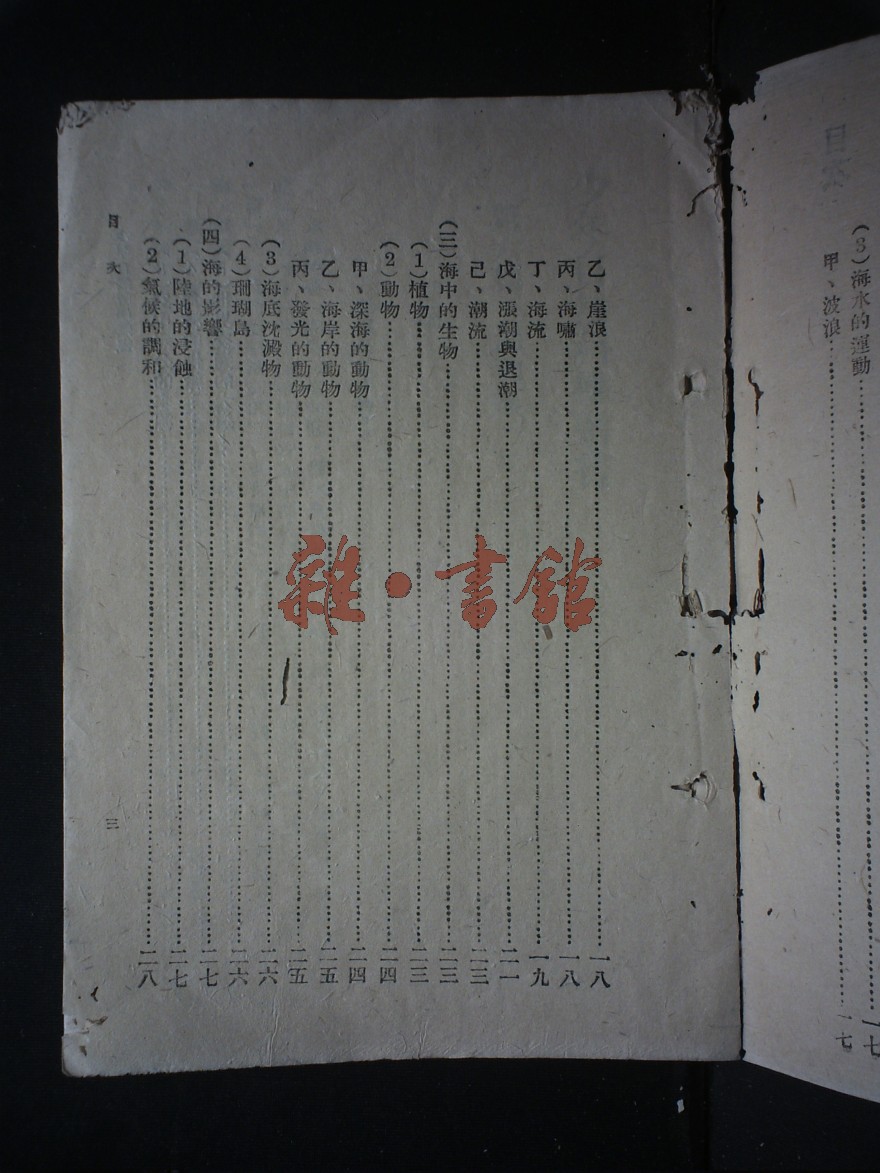 (3)海水的運動……一七
甲、波浪……一七
乙、崖浪……一八
丙、海嘯……一八
丁、海流……一九
戊、漲潮與退潮……二一
己、潮流……二三
(三)海中的生物……二三
(1)植物……二三
(2)動物……二四
甲、深海的動物……二四
乙、海岸的動物……二五
丙、發光的動物……二五
(3)海底沈澱物……二六
(4)珊瑚島……二六
(四)海的影響……二七
(1)陸地的浸蝕……二七
(2)氣候的調和……二八
目次
三
雜·書館